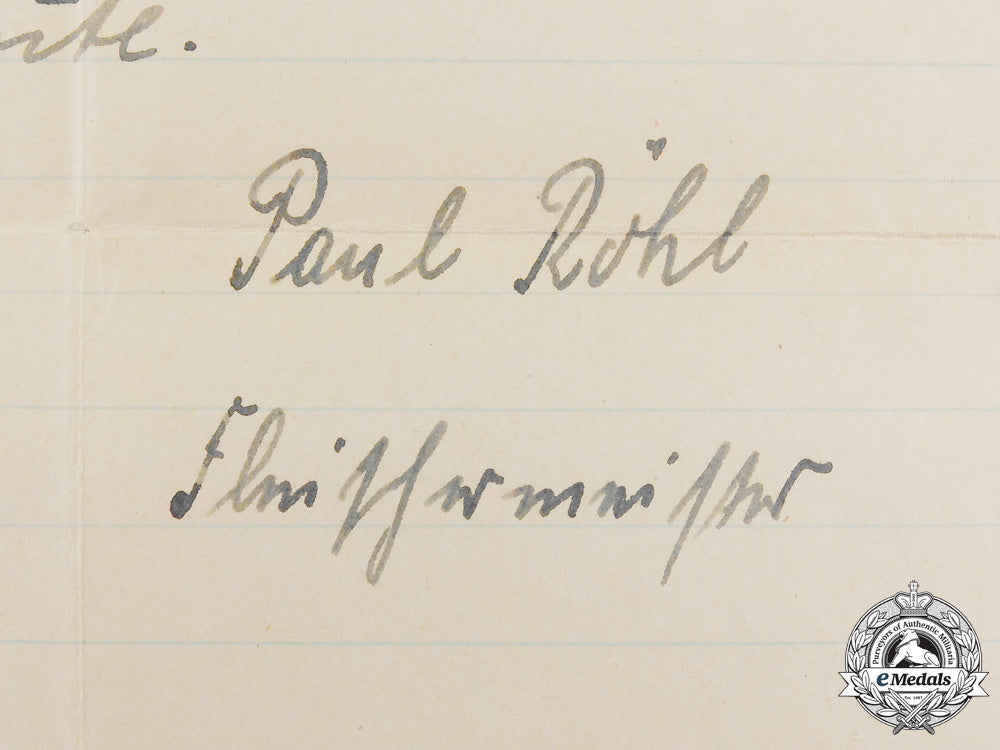 Paul Röhl
Fleischermeister
Purveyors of Authentic Militaria
eMedals
Est. 1967